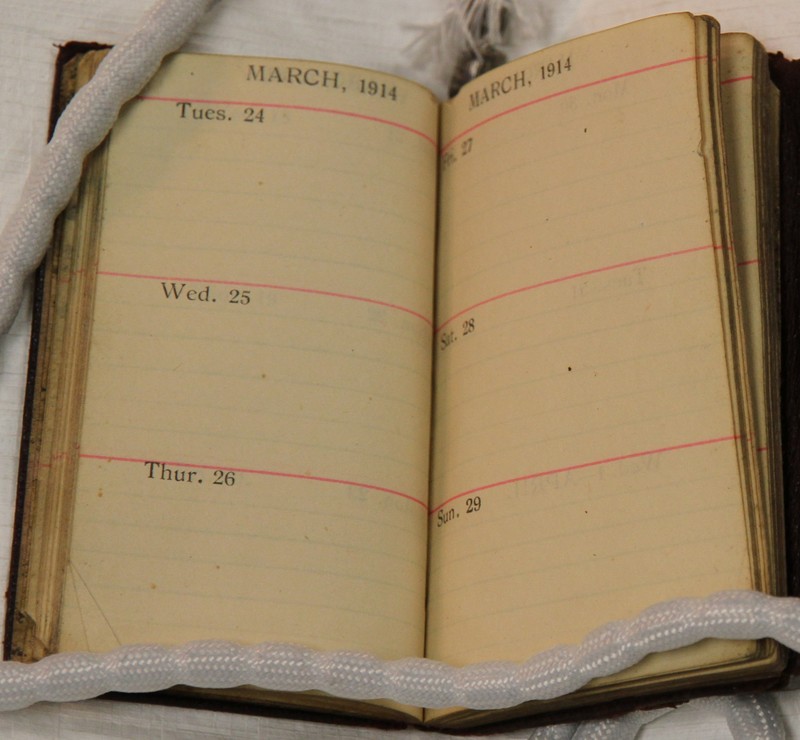 MARCH, 1914
Tues. 24
Wed. 25
Thur. 26
MARCH, 1914
Fri. 27
Sat. 28
Sun. 29